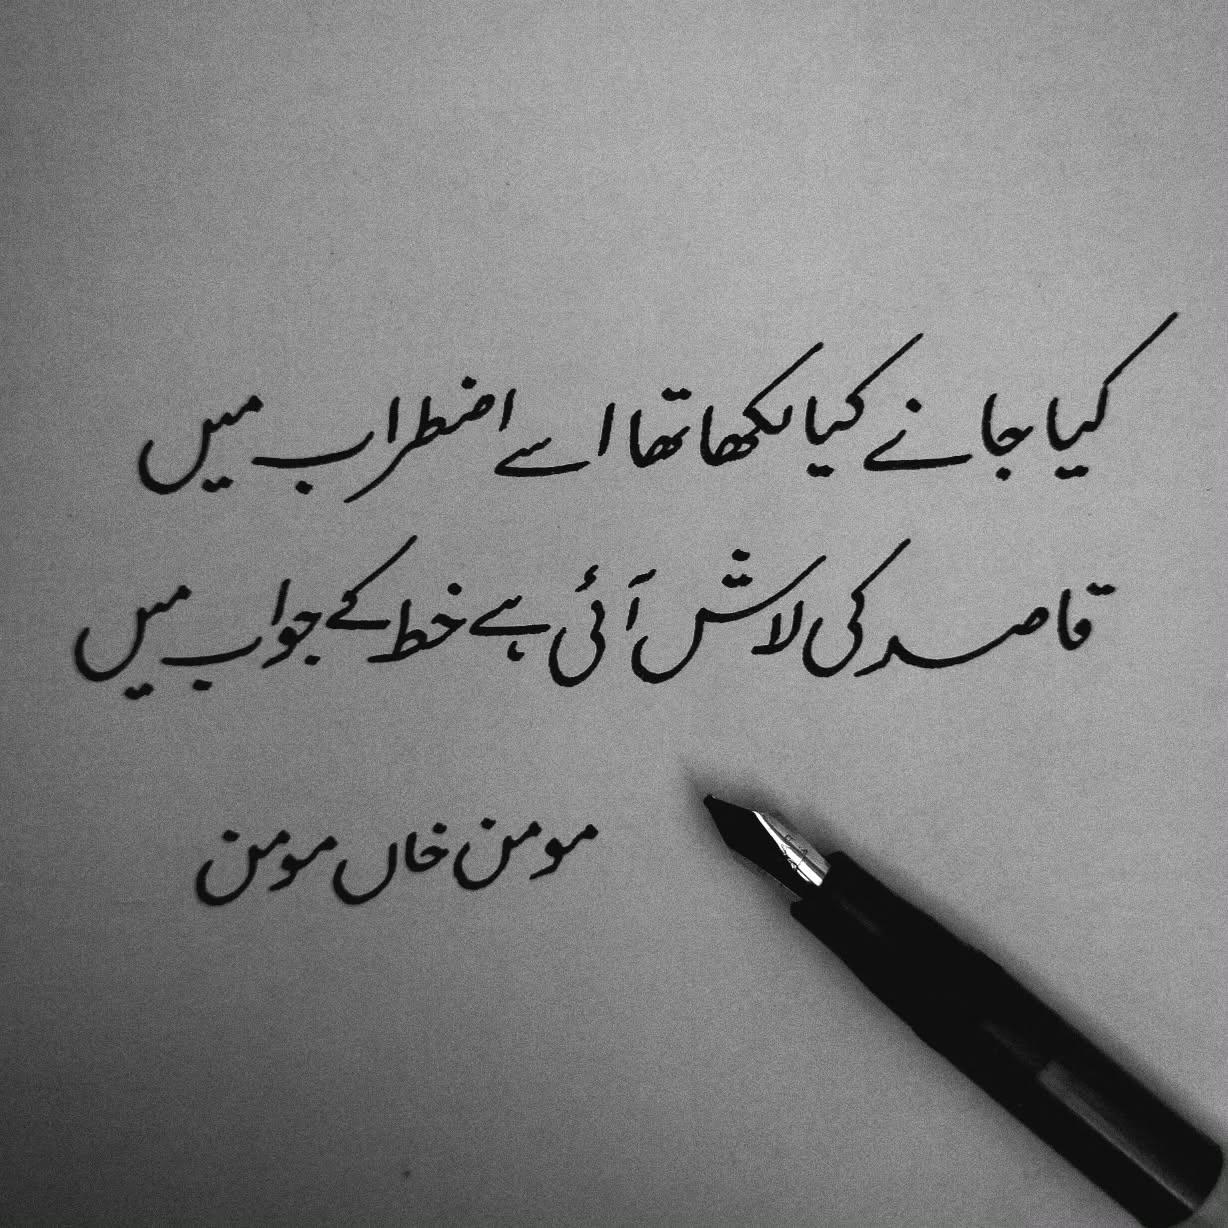 کیا جانے کیا لکھا تھا اسے اضطراب میں
قاصد کی لاش آئی ہے خط کے جواب میں
مومن خاں مومن